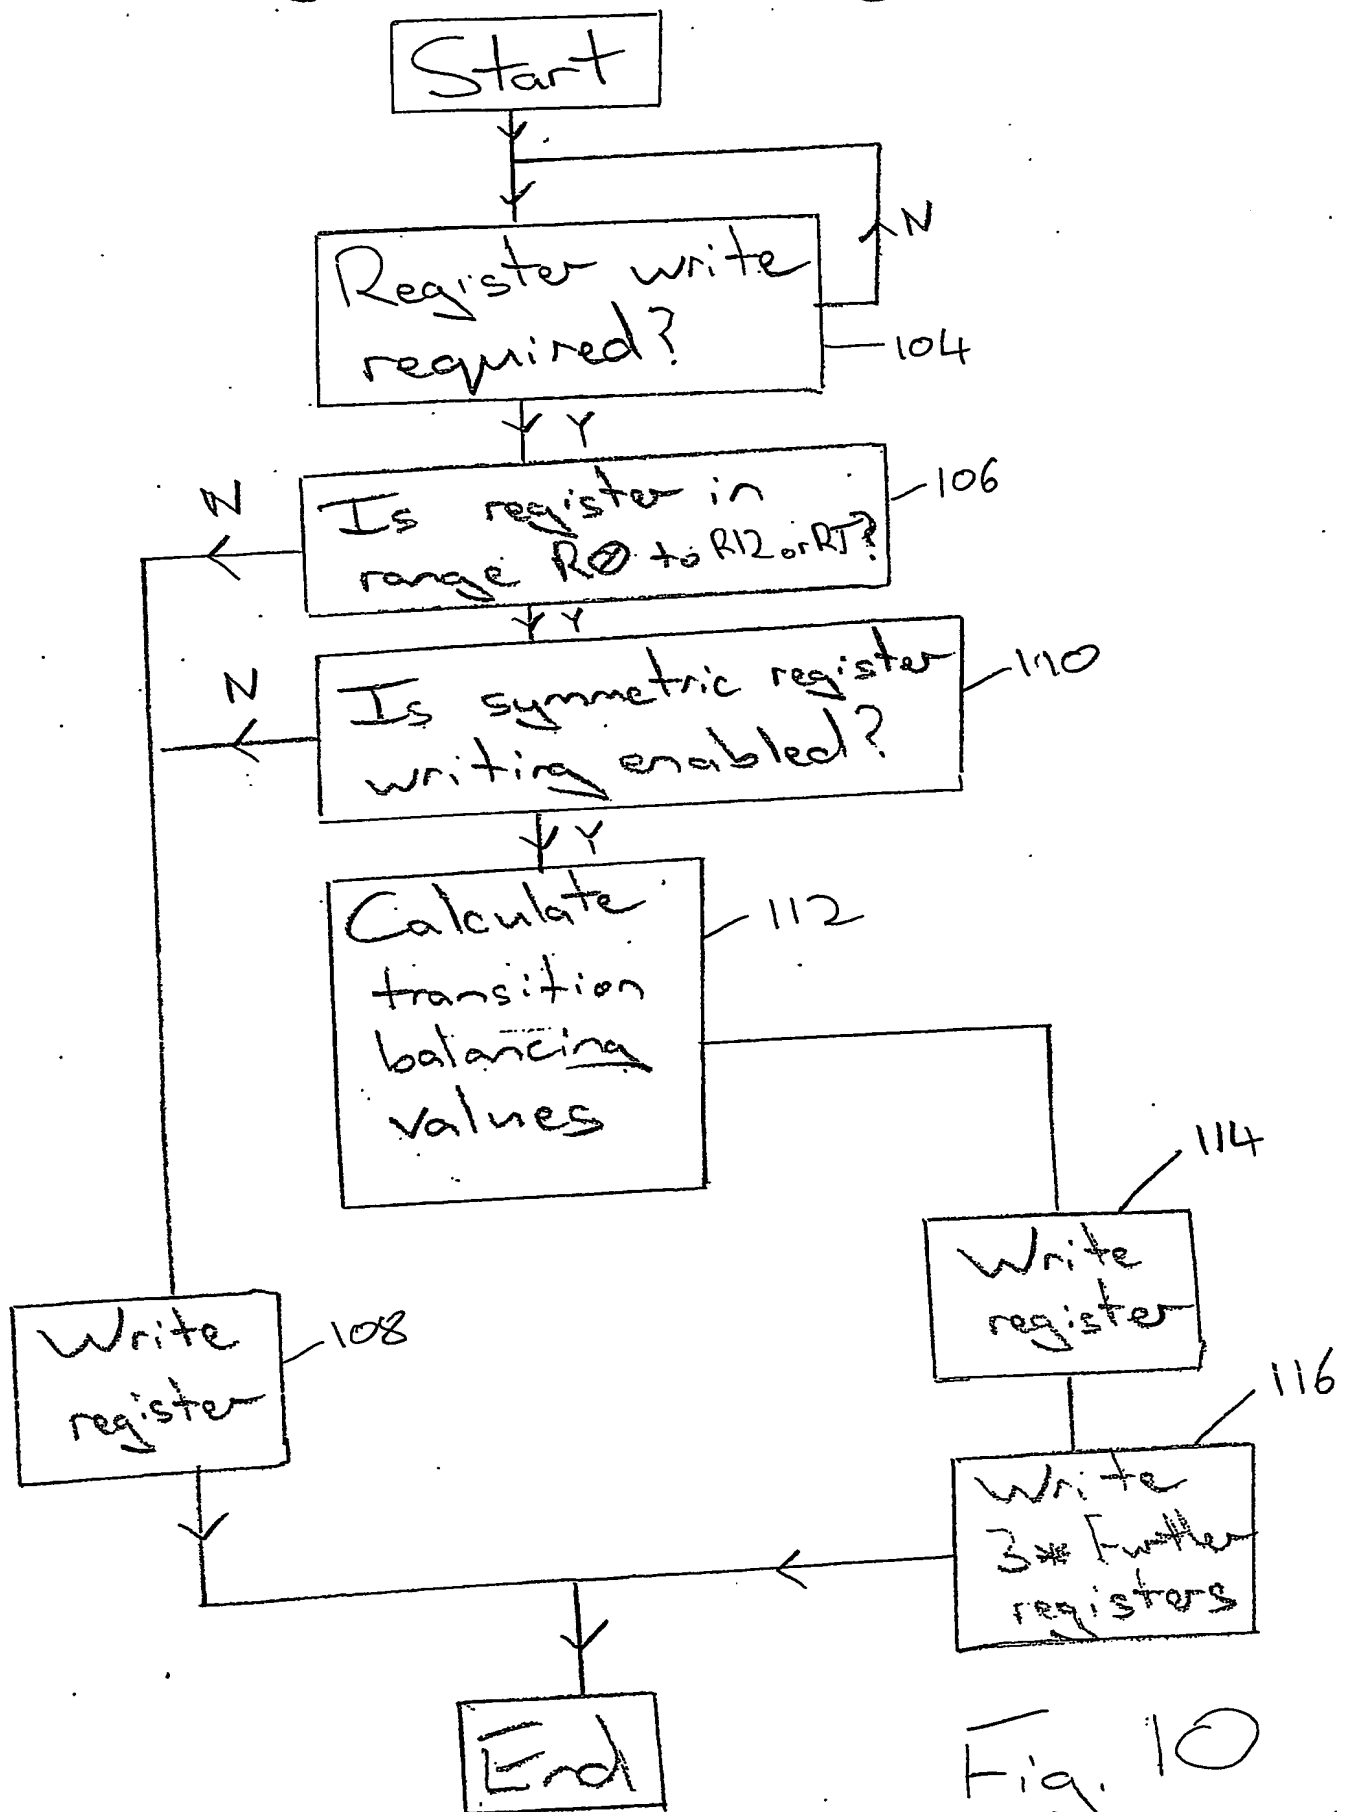 Start
N
Register write
required?
104
Y
N
Is register in
range R0 to R12 or RT?
106
Y
N
Is symmetric register
writing enabled?
110
Y
Calculate
transition
balancing
values
112
114
Write
register
Write
register
108
116
Write
3* Further
registers
End
Fig. 10